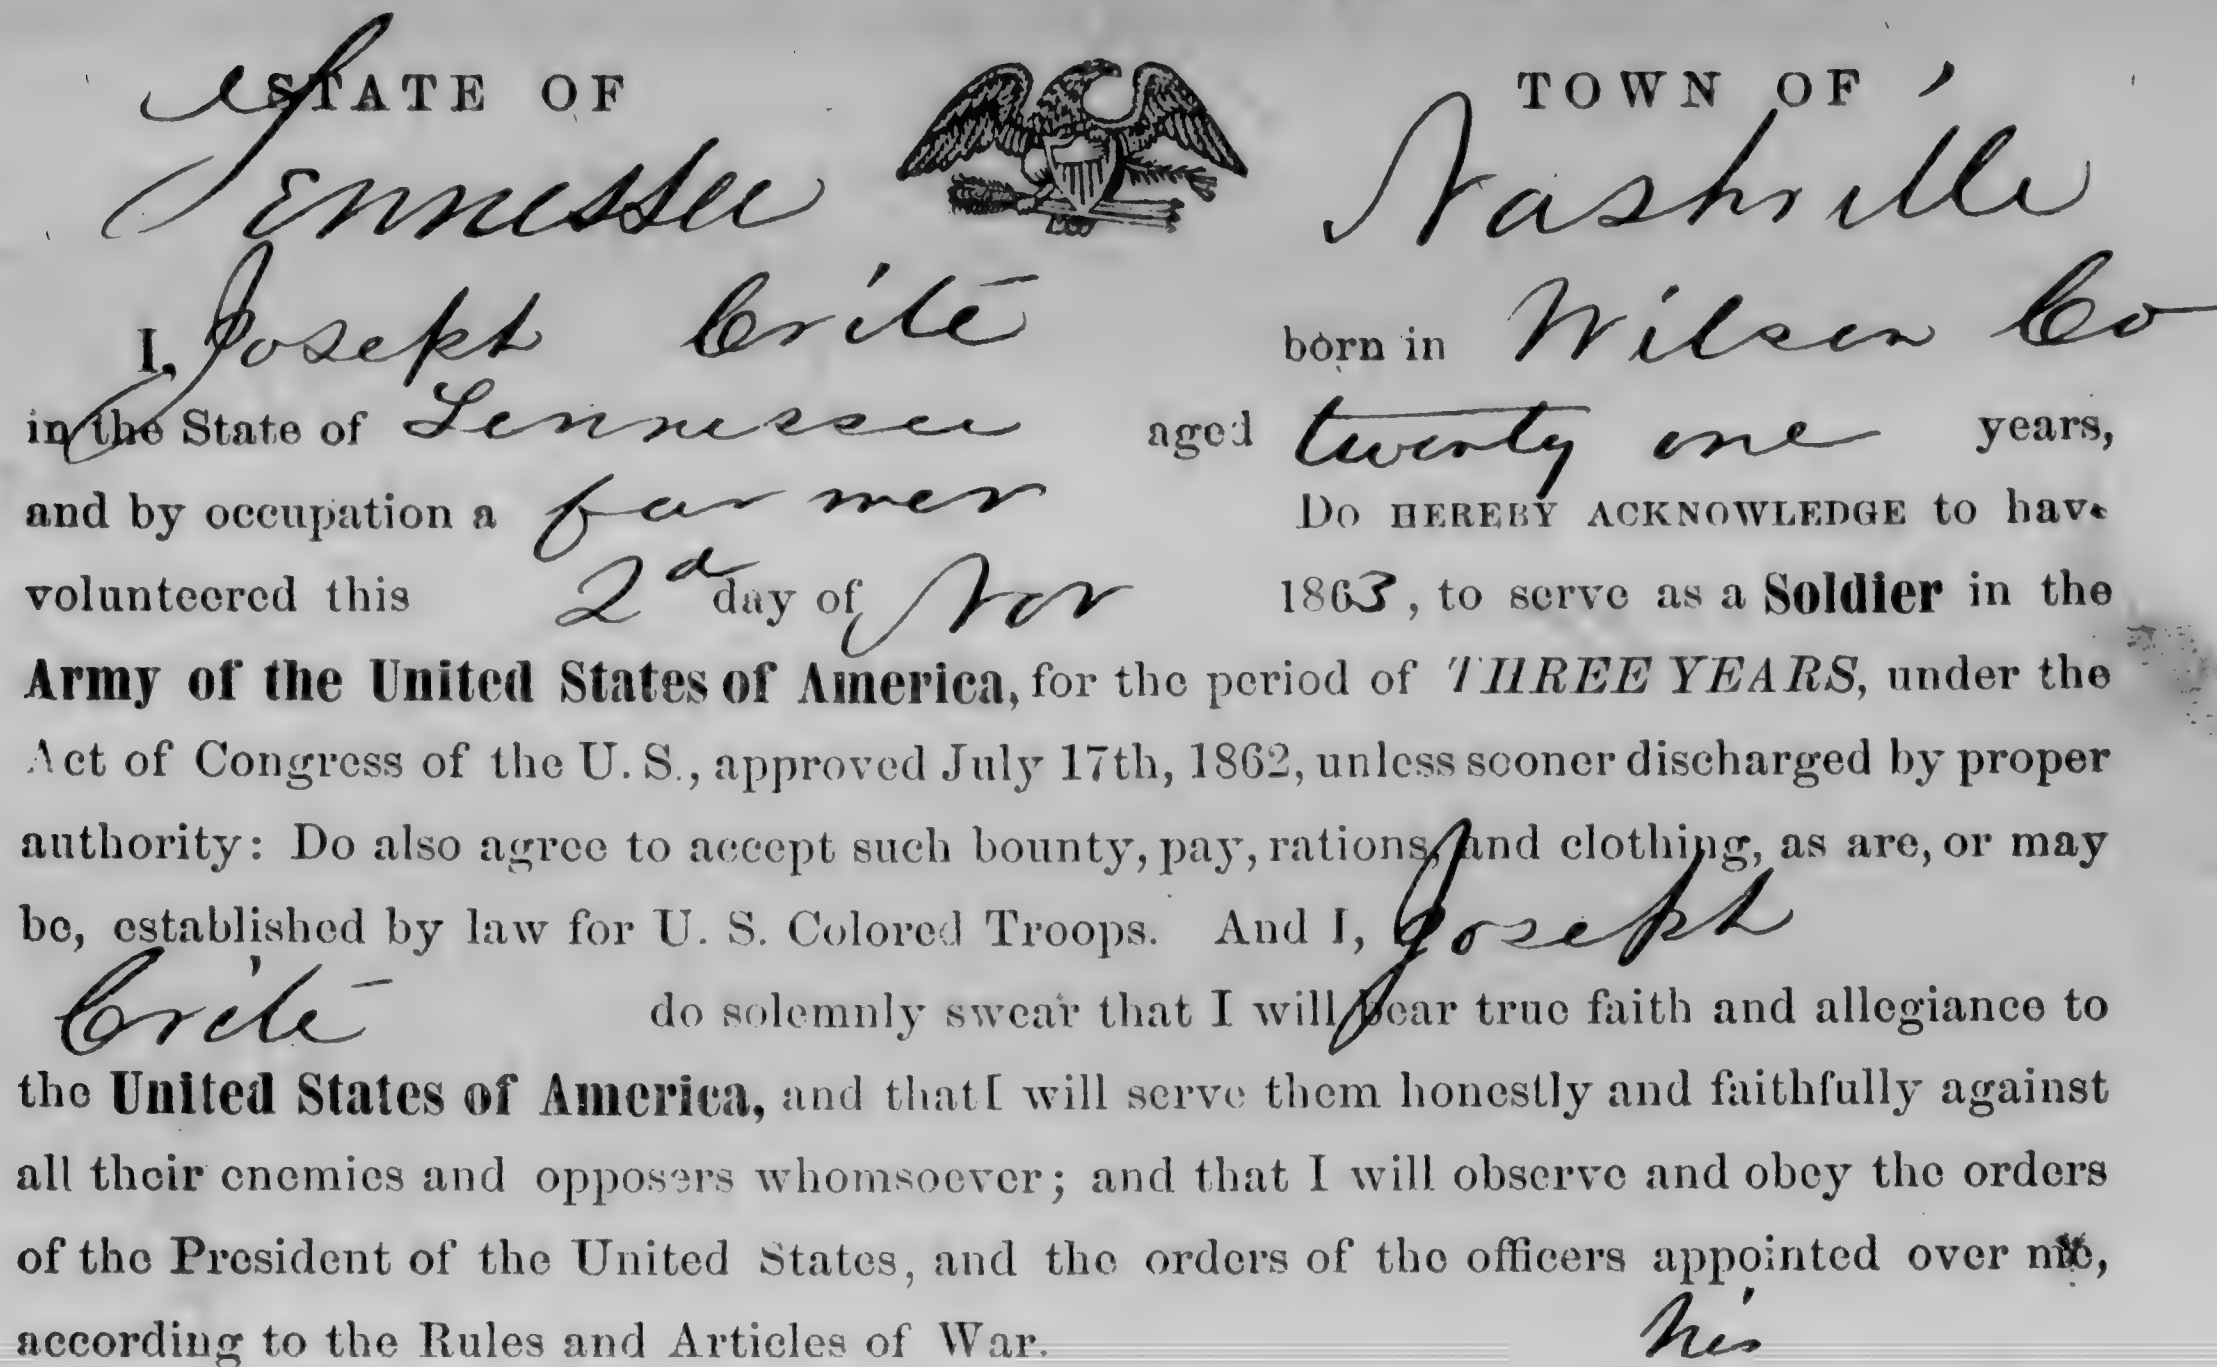 STATE OF TOWN OF
Tennessee Nashville
I, Joseph Crite born in Wilson Co
in the State of Tennessee aged twenty one years,
and by occupation a farmer Do HEREBY ACKNOWLEDGE to have
volunteered this 2d day of Nov 1863, to serve as a Soldier in the
Army of the United States of America, for the period of THREE YEARS, under the
Act of Congress of the U. S., approved July 17th, 1862, unless sooner discharged by proper
authority: Do also agree to accept such bounty, pay, rations, and clothing, as are, or may
be, established by law for U. S. Colored Troops. And I, Joseph
Crite do solemnly swear that I will bear true faith and allegiance to
the United States of America, and that I will serve them honestly and faithfully against
all their enemies and opposers whomsoever; and that I will observe and obey the orders
of the President of the United States, and the orders of the officers appointed over me,
according to the Rules and Articles of War. his